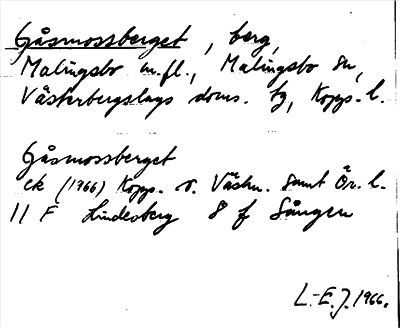 Gåsmossberget, berg,
Malingsbo m.fl., Malingsbo sn,
Västerbergslags doms. tg, Kopps. l.
Gåsmossberget
ek (1966) Kopps. o. Västm. samt Ör. l.
11 F Lindesberg 8 f Sången
L-E.J. 1966.